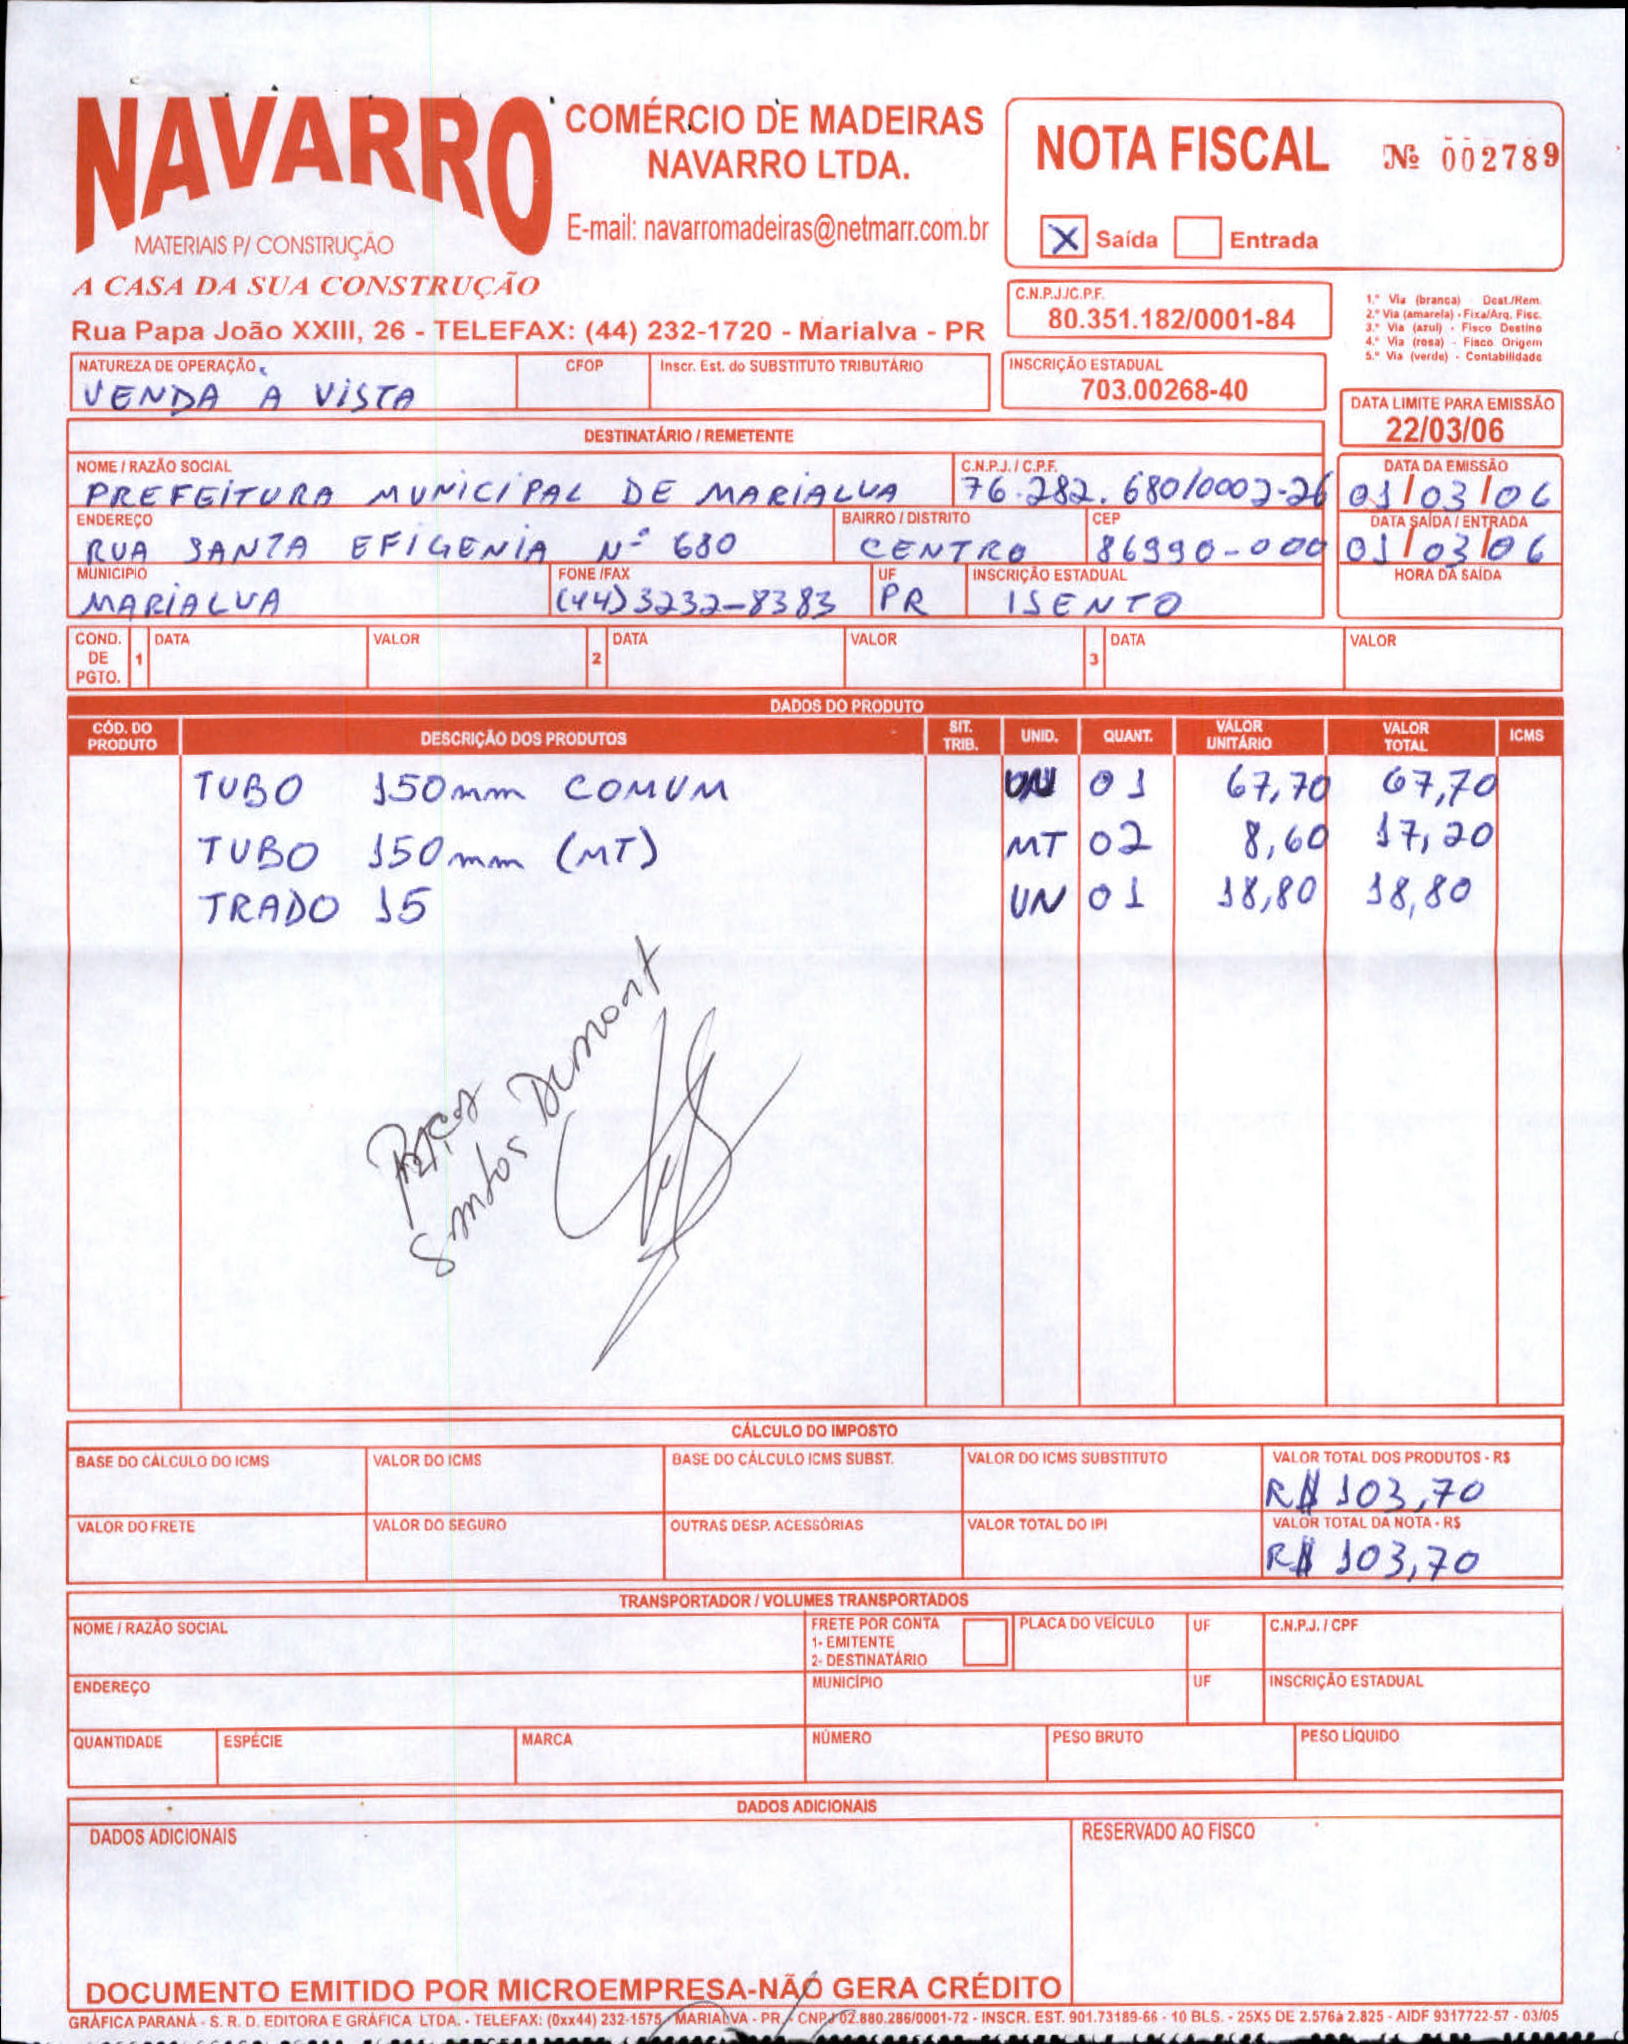 NAVARRO
MATERIAIS P/ CONSTRUÇÃO
A CASA DA SUA CONSTRUÇÃO
COMÉRCIO DE MADEIRAS
NAVARRO LTDA.
E-mail: navarromadeiras@netmarr.com.br
NOTA FISCAL Nº 002789
X Saída Entrada
Rua Papa João XXIII, 26 - TELEFAX: (44) 232-1720 - Marialva - PR
C.N.P.J./C.P.F.
80.351.182/0001-84
1.ª Via (branca) - Dest./Rem.
2.ª Via (amarela) - Fixa/Arq. Fisc.
3.ª Via (azul) - Fisco Destino
4.ª Via (rosa) - Fisco Origem
5.ª Via (verde) - Contabilidade
NATUREZA DE OPERAÇÃO CFOP Inscr. Est. do SUBSTITUTO TRIBUTÁRIO INSCRIÇÃO ESTADUAL
VENDA A VISTA 703.00268-40
DATA LIMITE PARA EMISSÃO
22/03/06
DESTINATÁRIO / REMETENTE
NOME / RAZÃO SOCIAL C.N.P.J. / C.P.F. DATA DA EMISSÃO
PREFEITURA MUNICIPAL DE MARIALVA 76.282.680/0002-26 01/03/06
ENDEREÇO BAIRRO / DISTRITO CEP DATA SAÍDA / ENTRADA
RUA SANTA EFIGENIA Nº 680 CENTRO 86990-000 01/03/06
MUNICIPIO FONE /FAX UF INSCRIÇÃO ESTADUAL HORA DA SAÍDA
MARIALVA (44)3232-8383 PR ISENTO
COND. DE PGTO. 1 DATA VALOR 2 DATA VALOR 3 DATA VALOR
DADOS DO PRODUTO
CÓD. DO PRODUTO DESCRIÇÃO DOS PRODUTOS SIT. TRIB. UNID. QUANT. VALOR UNITÁRIO VALOR TOTAL ICMS
TUBO 150mm COMUM UN 01 67,70 67,70
TUBO 150mm (MT) MT 02 8,60 17,20
TRADO 15 UN 01 18,80 18,80
Santos Dumont
CÁLCULO DO IMPOSTO
BASE DO CÁLCULO DO ICMS VALOR DO ICMS BASE DO CÁLCULO ICMS SUBST. VALOR DO ICMS SUBSTITUTO VALOR TOTAL DOS PRODUTOS - R$
R$ 103,70
VALOR DO FRETE VALOR DO SEGURO OUTRAS DESP. ACESSÓRIAS VALOR TOTAL DO IPI VALOR TOTAL DA NOTA - R$
R$ 103,70
TRANSPORTADOR / VOLUMES TRANSPORTADOS
NOME / RAZÃO SOCIAL FRETE POR CONTA PLACA DO VEÍCULO UF C.N.P.J. / CPF
1- EMITENTE
2- DESTINATÁRIO
ENDEREÇO MUNICÍPIO UF INSCRIÇÃO ESTADUAL
QUANTIDADE ESPÉCIE MARCA NÚMERO PESO BRUTO PESO LÍQUIDO
DADOS ADICIONAIS
DADOS ADICIONAIS RESERVADO AO FISCO
DOCUMENTO EMITIDO POR MICROEMPRESA-NÃO GERA CRÉDITO
GRÁFICA PARANÁ - S. R. D. EDITORA E GRÁFICA LTDA. - TELEFAX: (0xx44) 232-1575 MARIALVA - PR - CNPJ 02.880.286/0001-72 - INSCR. EST. 901.73189-66 - 10 BLS. - 25X5 DE 2.576à 2.825 - AIDF 9317722-57 - 03/05